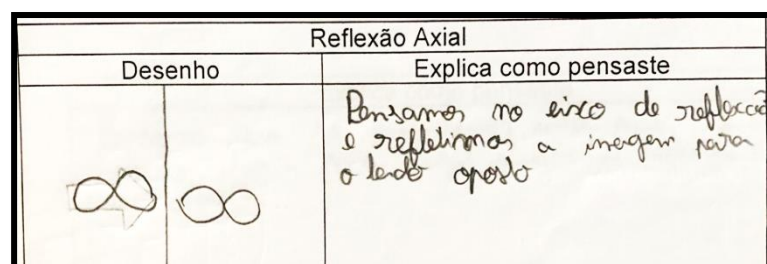 Reflexão Axial
Desenho
Explica como pensaste
Pensamos no eixo de reflexcão
e refletimos a imagem para
o lado oposto